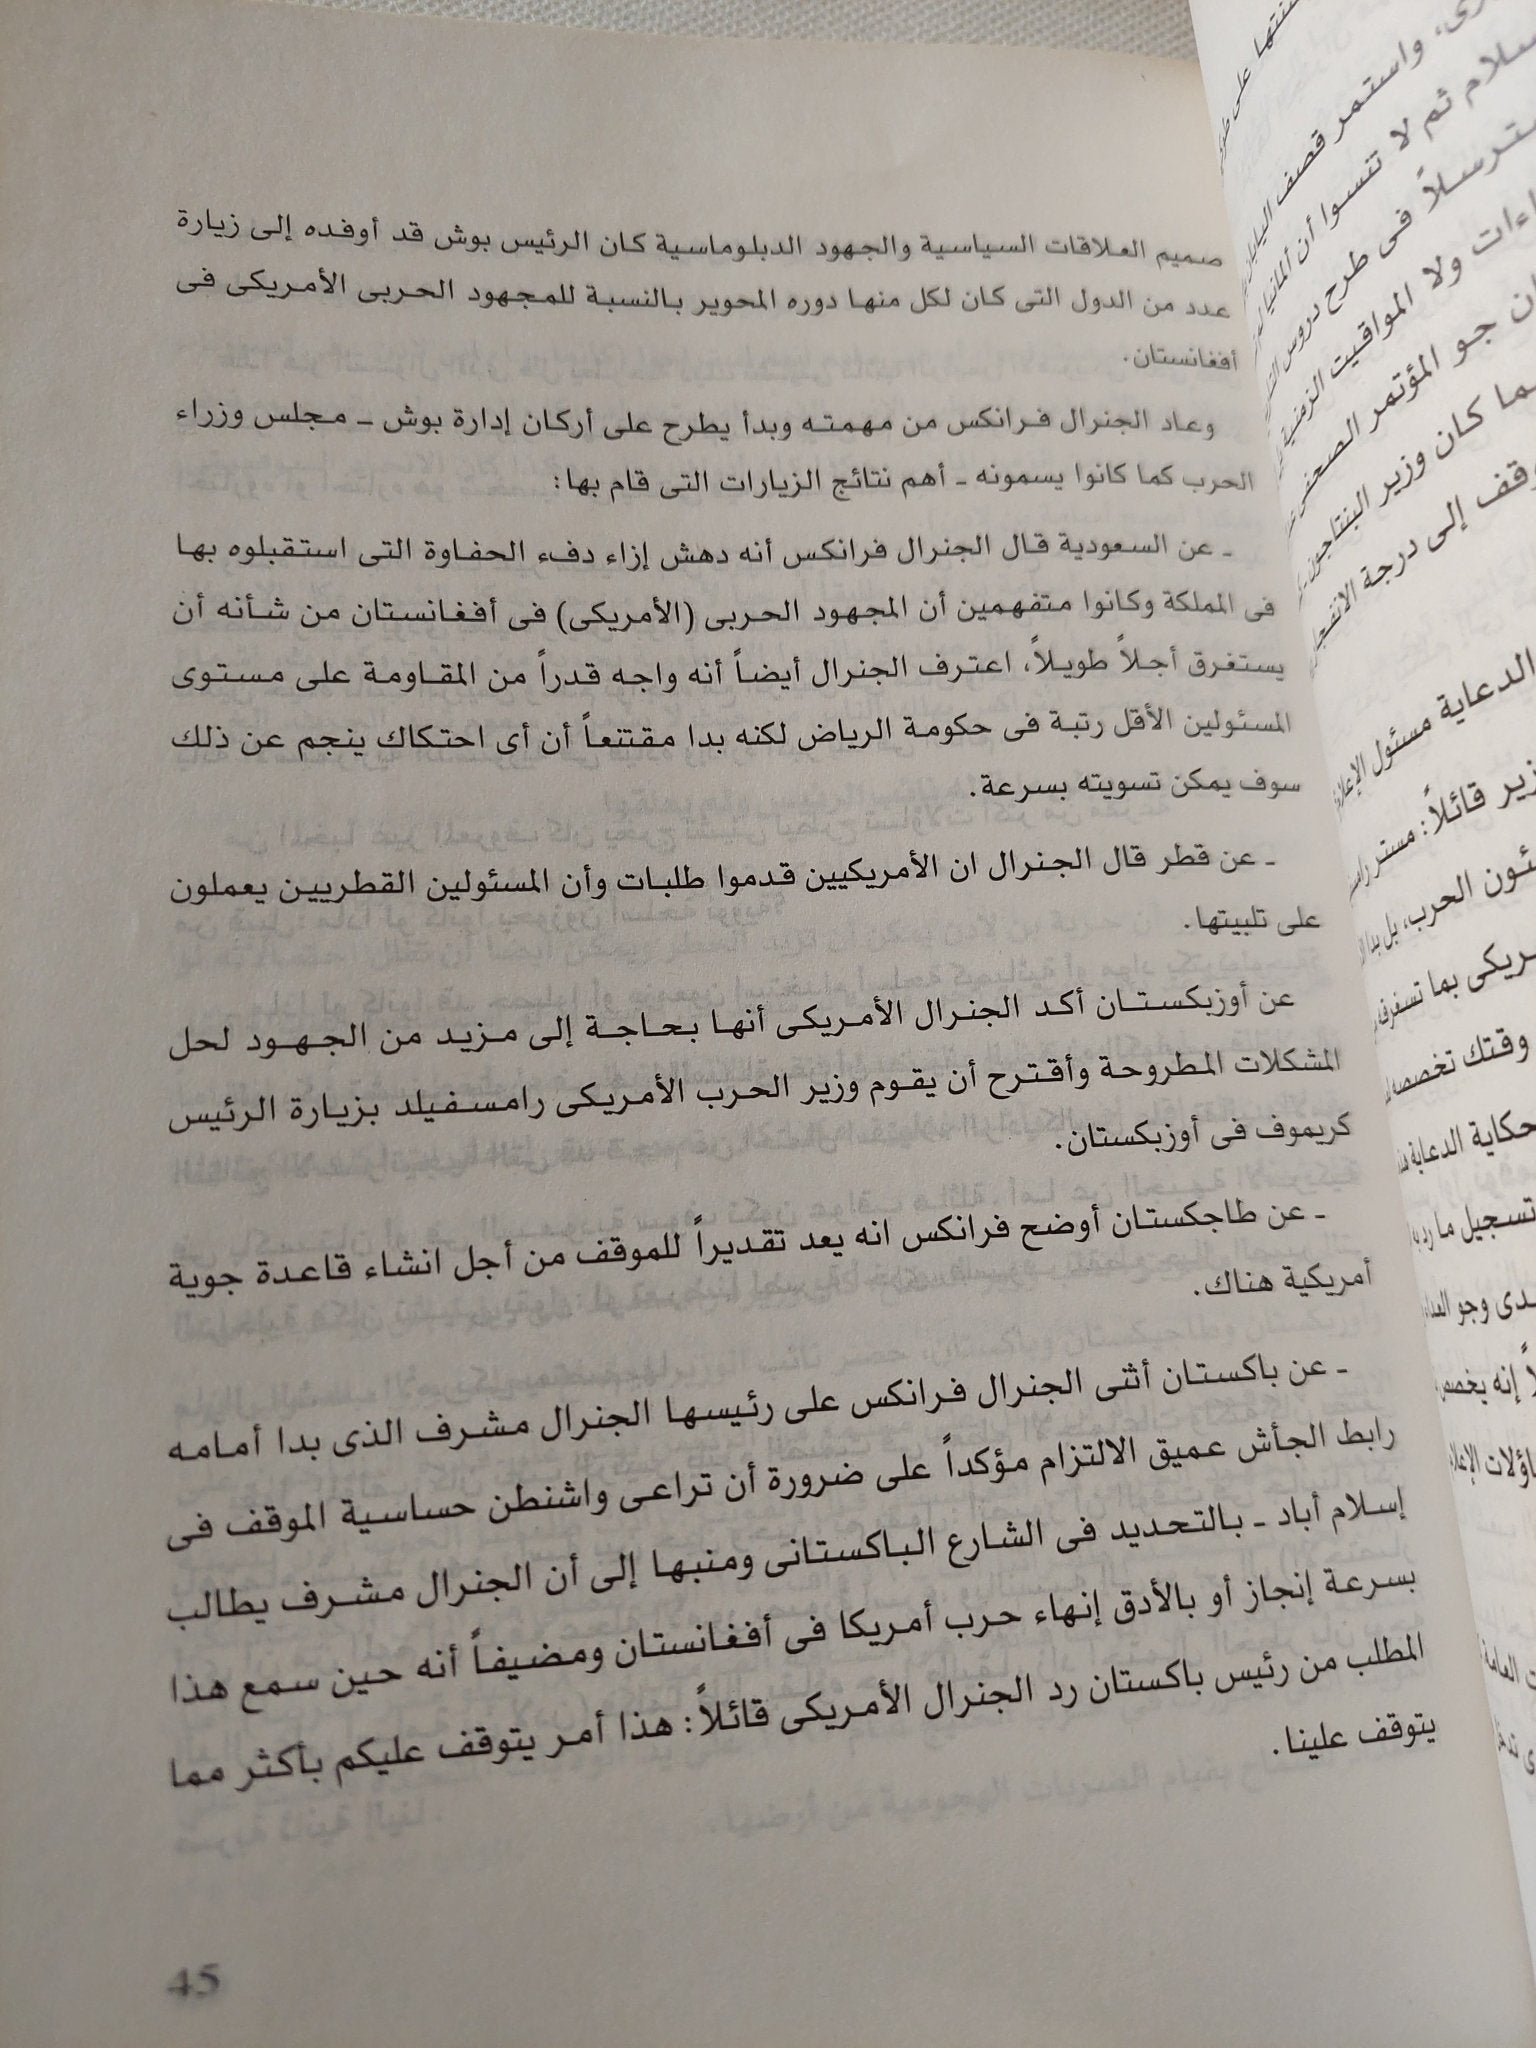 صميم العلاقات السياسية والجهود الدبلوماسية كان الرئيس بوش قد أوفده إلى زيارة
عدد من الدول التى كان لكل منها دوره المحوير بالنسبة للمجهود الحربى الأمريكى فى
أفغانستان.
وعاد الجنرال فرانكس من مهمته وبدأ يطرح على أركان إدارة بوش ـ مجلس وزراء
الحرب كما كانوا يسمونه ـ أهم نتائج الزيارات التى قام بها:
ـ عن السعودية قال الجنرال فرانكس أنه دهش إزاء دفء الحفاوة التى استقبلوه بها
فى المملكة وكانوا متفهمين أن المجهود الحربى (الأمريكى) فى أفغانستان من شأنه أن
يستغرق أجلاً طويلاً، اعترف الجنرال أيضاً أنه واجه قدراً من المقاومة على مستوى
المسئولين الأقل رتبة فى حكومة الرياض لكنه بدا مقتنعاً أن أى احتكاك ينجم عن ذلك
سوف يمكن تسويته بسرعة.
ـ عن قطر قال الجنرال ان الأمريكيين قدموا طلبات وأن المسئولين القطريين يعملون
على تلبيتها.
عن أوزبكستان أكد الجنرال الأمريكى أنها بحاجة إلى مزيد من الجهود لحل
المشكلات المطروحة وأقترح أن يقوم وزير الحرب الأمريكى رامسفيلد بزيارة الرئيس
كريموف فى أوزبكستان.
ـ عن طاجكستان أوضح فرانكس انه يعد تقديراً للموقف من أجل انشاء قاعدة جوية
أمريكية هناك.
ـ عن باكستان أثنى الجنرال فرانكس على رئيسها الجنرال مشرف الذى بدا أمامه
رابط الجأش عميق الالتزام مؤكداً على ضرورة أن تراعى واشنطن حساسية الموقف فى
إسلام أباد ـ بالتحديد فى الشارع الباكستانى ومنبها إلى أن الجنرال مشرف يطالب
بسرعة إنجاز أو بالأدق إنهاء حرب أمريكا فى أفغانستان ومضيفاً أنه حين سمع هذا
المطلب من رئيس باكستان رد الجنرال الأمريكى قائلاً: هذا أمر يتوقف عليكم بأكثر مما
يتوقف علينا.
45
واستمر قصف
ثم لا تنسوا أن ألمانيا
فى طرح دروس
ولا المواقيت الزمنية
جو المؤتمر الصحفى
كان وزير البنتاجون
إلى درجة
الدعاية مسئول
قائلاً: مستر
الحرب، بل
بما تسفر
وقتك تخصصه
حكاية الدعاية
تسجيل ما رد
وجو
إنه يخصص